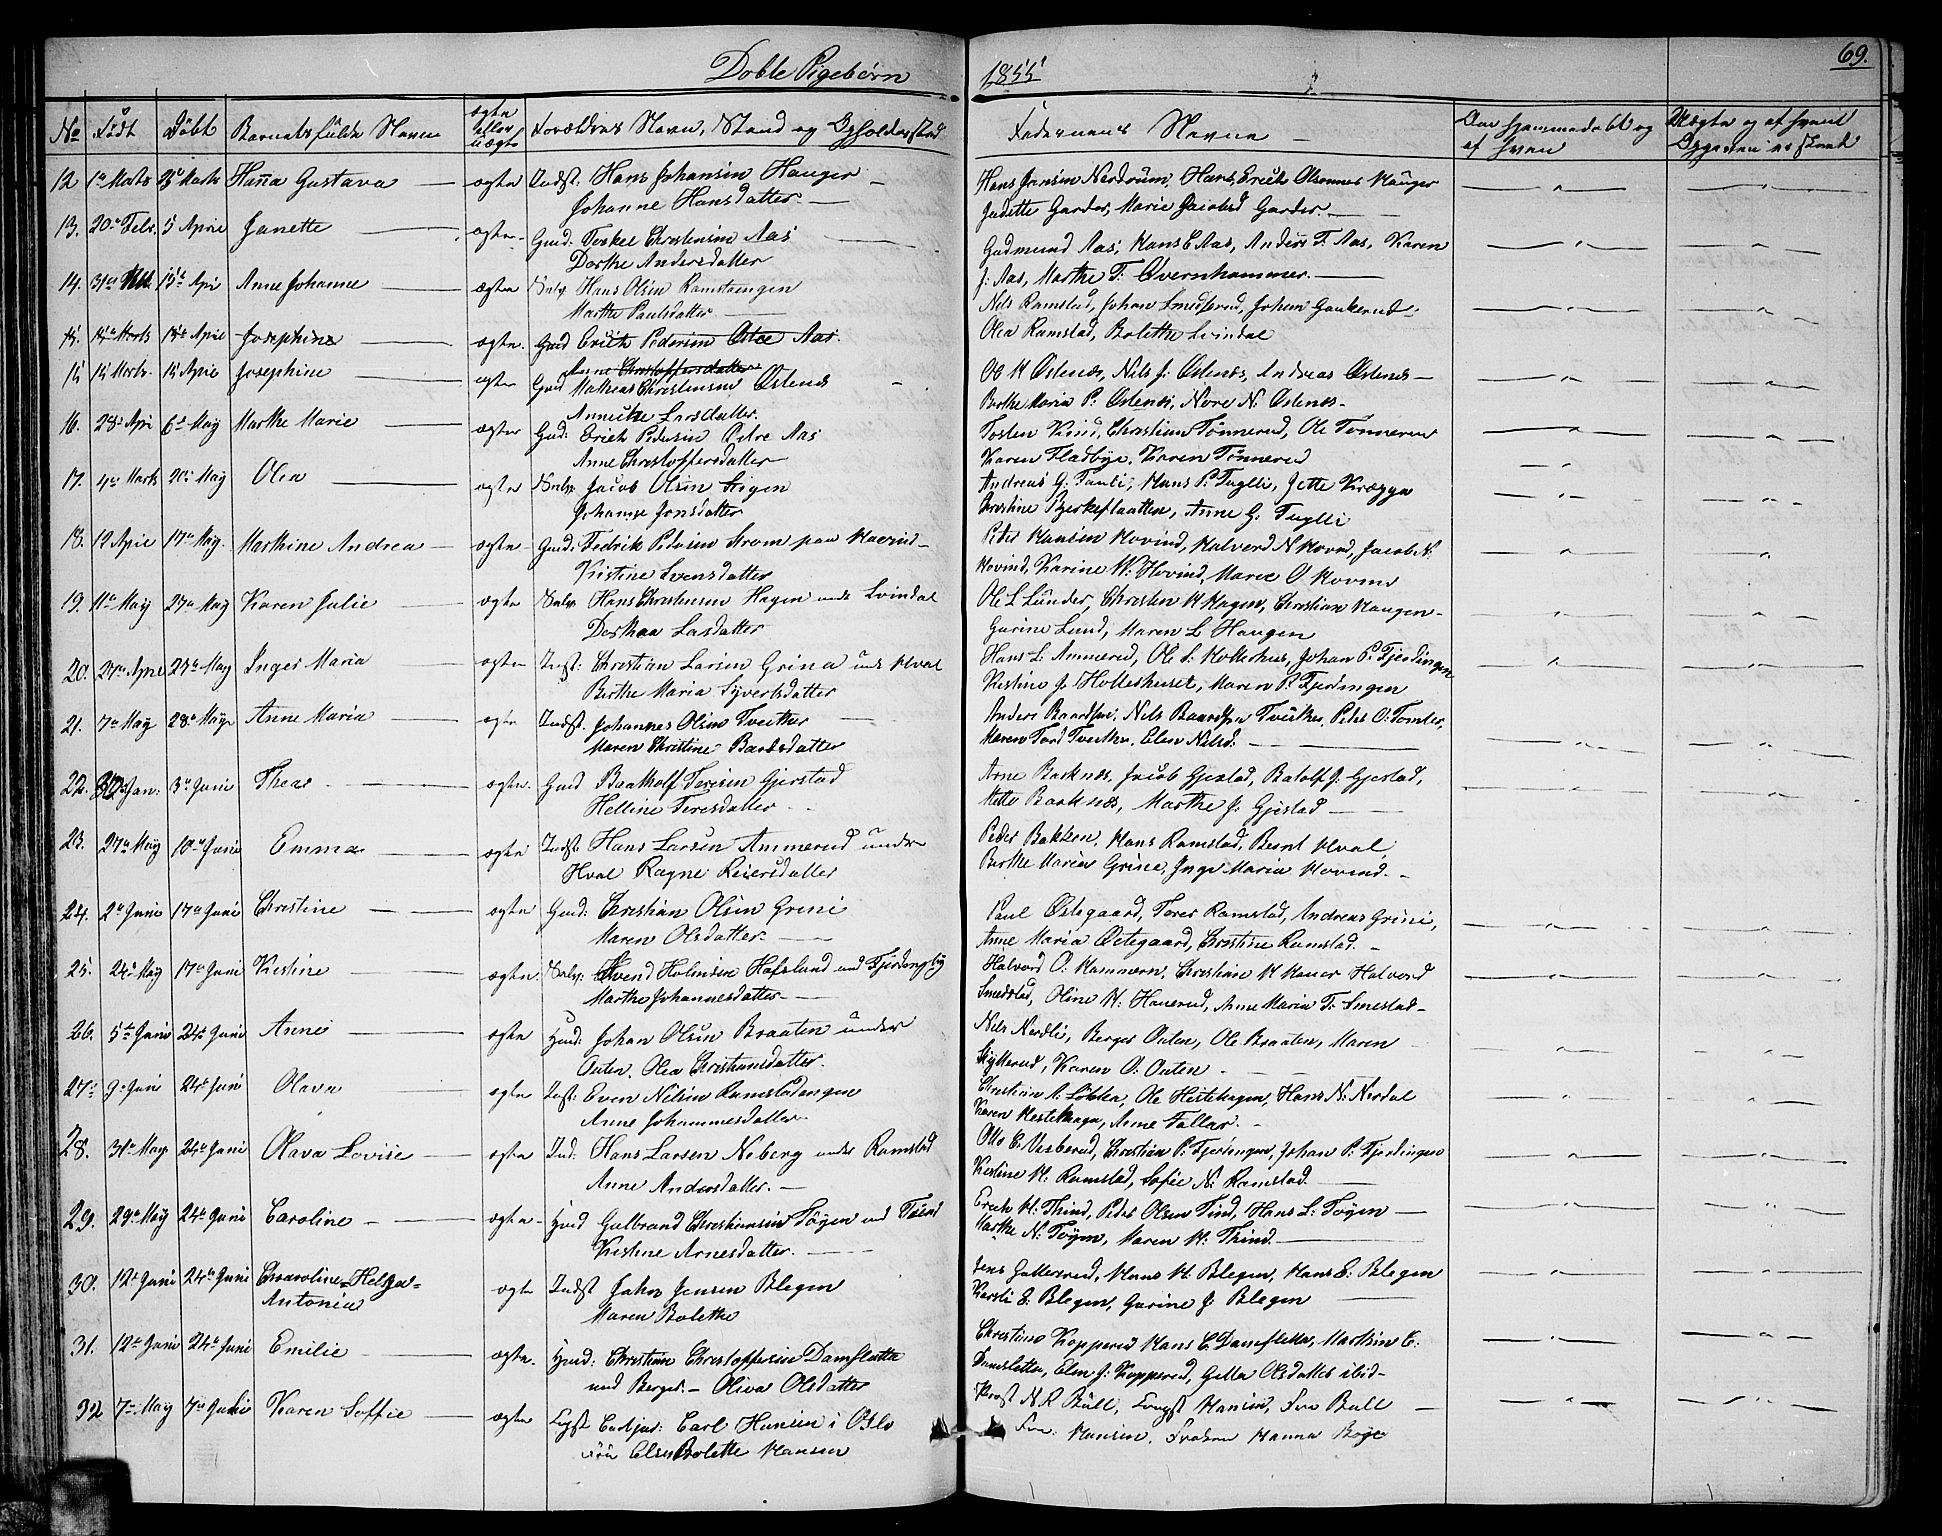 Døbte Pigebørn
1855
69.
No Født Døbt Barnets fulde Navn ægte eller uægte Forældres Navn, Stand og Opholdssted
Faddernes Navne Om hjemmedøbt og af hvem
12 1te Marts Marts Hanna Gustava ægte Indst: Hans Johansen Hauger
Johanne Hansdatter
Hans Jansen Nordrum, Hans, Erich Olsennes Hauger
Garder, Marie Jacobsd Garder.
13. 20de Febr. 5 April Janette ægte Gmd: Terkel Christensen Aas
Dorthe Andersdatter
Gudmund Aas, Hans E Aas, Anders T. Aas, Karen
J: Aas, Marthe T. Øvernhammer.
14. 15de Apr Anne Johanne ægte Hans Olsen Ramstaengen
Marthe Paulsdatter
Nils Ramstad, Johan Smedsrud, Johan Gaukerud
Olea Ramstad, Bolethe Svindal
15. Marts April Josephine ægte Gmd Erich Pedersen Østre Aas.
Anne Christoffersdatter
15 15 Marts. 15 April Josephine ægte Gmd Mathias Christensen Østenes
Larsdatter.
Ol H Østenes, Nils J: Østenes, Andreas Østenes
Berthe Maria P: Østenes, Nore N. Østenes.
16. 28de Apr 6te May Marthe Marie ægte Gmd: Erich Pedersen Østre Aas
Anne Christoffersdatter
Tosten Kind, Christian Tønnerud, Ole Tønnerud
Karen Fladbye, Karen Tønnerud
17. 4de Marts 20de May Olea ægte Jacob Olsen Stigen
Johanne Jonsdatter
Andreas G: Tuuli, Hans P. Tuglli, Jette Krogge
Christine Bjerkeflaatten, Anne G: Tuglli
18. 12 April 17de May. Marthine Andrea ægte Gmd: Fedrik Pedersen Strøm paa
Kristine Svensdatter
Peder Hansen Hovind, Halvord N Hovind, Jacob N.
Hovind, Karine W: Hovind, Maree O Hovind
19. 11te May 27de May Karen Julie ægte Hans Christensen Hagen under Svindal
Dorthea Lasdatter
Ole L Lunder, Christen H Hagen, Christian Haugen
Gurine Lund, Maren L Haugen
20. 27de Apr 28de May Inger Maria ægte Indst: Christian Larsen Grina und Hval
Berthe Maria Syvertsdatter
Hans L: Ammerud, Ole L: Holterhus, Johan P. Fjerdingen
Kristine J: Holteshuset, Maren P. Fjerdingen
21. 7de May 28de May Anne Maria ægte Indst. Johannes Olsen Tveither
Maren Christine Bardsdatter
Anders Baardsen, Nils Baardsen Tveither, Peder O: Tomter,
Maren Tord Tveither, Elen Nilsd.
22. Jan: 3de Juni Thea ægte. Gmd Baatholf Toresen Gjerstad
Helline Toresdatter
Arne Barknes, Jacob Gjestad, Batolf J: Gjestad,
Mette Baaknes, Marthe J: Gjestad
23. 27de May 10de Juni Emma ægte Indst: Hans Larsen Ammerud under
Hval Ragne Reiersdatter
Peder Bakken, Hans Ramstad, Bernt Hval,
Berthe Maria Grine, Inge Maria Hovind.
24. 2de Juni 17de Juni Christine ægte Gmd: Christian Olsen Grini
Maren Olsdatter.
Paul Østegaard, Tores Ramstad, Andreas Grini,
Anne Maria Østegaard, Christine Ramstad.
25. 24de May 17de Juni Kristine ægte. Svend Holmsen Hafslund und Fjerdingby
Marthe Johannesdatter
Halvord O: Hammern, Christian H Haner Halvord
Smedstad, Oline N: Hanerud, Anne Maria T: Smestad
26. 5te Juni 24de Juni Anne ægte Hmd: Johan Olsen Braaten under
Outen. Olea Christiansdatter.
Nils Nordli, Berger Outen, Ole Braaten, Maren
Skytterud, Karen O: Outen
27. 9de Juni 24de Juni Olava ægte Inst: Even Nilsen Ramstadengen
Anne Johannesdatter
Christian A: Løkka, Ole Hestehagen, Hans N. Nerdal
Karen Hestehagen, Anne Tallar.
28. 31te May 24de Juni Olava Lovise ægte Ind: Hans Larsen Noberg under Ramstad
Anne Andersdatter.
Otto E: Visberud, Christian P. Fjerdingen, Johan P. Fjerdingen
Kristine H: Ramstad, Sofie N: Ramstad
29. 29de May 24de Juni Caroline ægte Hmd Gulbrand Christiansen Tøyen und
Kristine Arnesdatter.
Erich H: Thind, Peder Olsen Tind, Hans L: Tøyen
Marthe N: Tøyen, Maren H: Thind
30. 12te Juni 24de Juni Charoline Helga
Antonie ægte Indst Johan Jensen Blegen
Maren Bolethe
Jens Gullerud, Hans H. Blegen, Hans E: Blegen
E: Blegen, Gurine J: Blegen
31. 12te Juni 24de Juni Emilie ægte. Hmd: Christian Christoffersen Damsletta
und Berger. Oliva Olsdatter
Christine Kopperud Hans C Damsletta, Marthin C:
Damsletta, Elen J: Kopperud, Gella Olsdatter ibid
32 7de May 7de Juli Karen Soffie ægte Carl Hansen i Oslo
Elen Bolette Hansen
Prost N R Bull, Hansen, Fru Bull
Fru: Hansen, Frøken Hanna Bøge